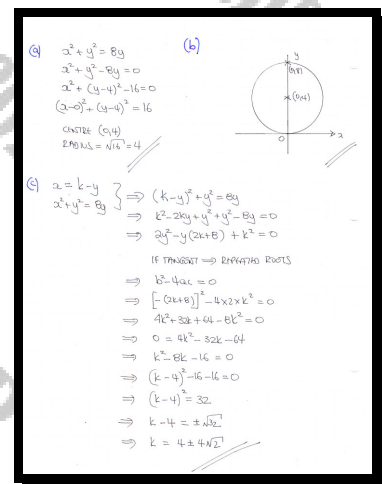 (a) x² + y² = 8y
x² + y² - 8y = 0
x² + (y-4)² - 16 = 0
(x-0)² + (y-4)² = 16
CENTRE (0,4)
RADIUS = √16 = 4
(b)
y
(0,8)
(0,4)
O
x
(c) x = k - y
x² + y² = 8y
⇒ (k-y)² + y² = 8y
⇒ k² - 2ky + y² + y² - 8y = 0
⇒ 2y² - y(2k+8) + k² = 0
IF TANGENT ⇒ REPEATED ROOTS
⇒ b² - 4ac = 0
⇒ [-(2k+8)]² - 4×2×k² = 0
⇒ 4k² + 32k + 64 - 8k² = 0
⇒ 0 = 4k² - 32k - 64
⇒ k² - 8k - 16 = 0
⇒ (k-4)² - 16 - 16 = 0
⇒ (k-4)² = 32
⇒ k - 4 = ±√32
⇒ k = 4 ± 4√2